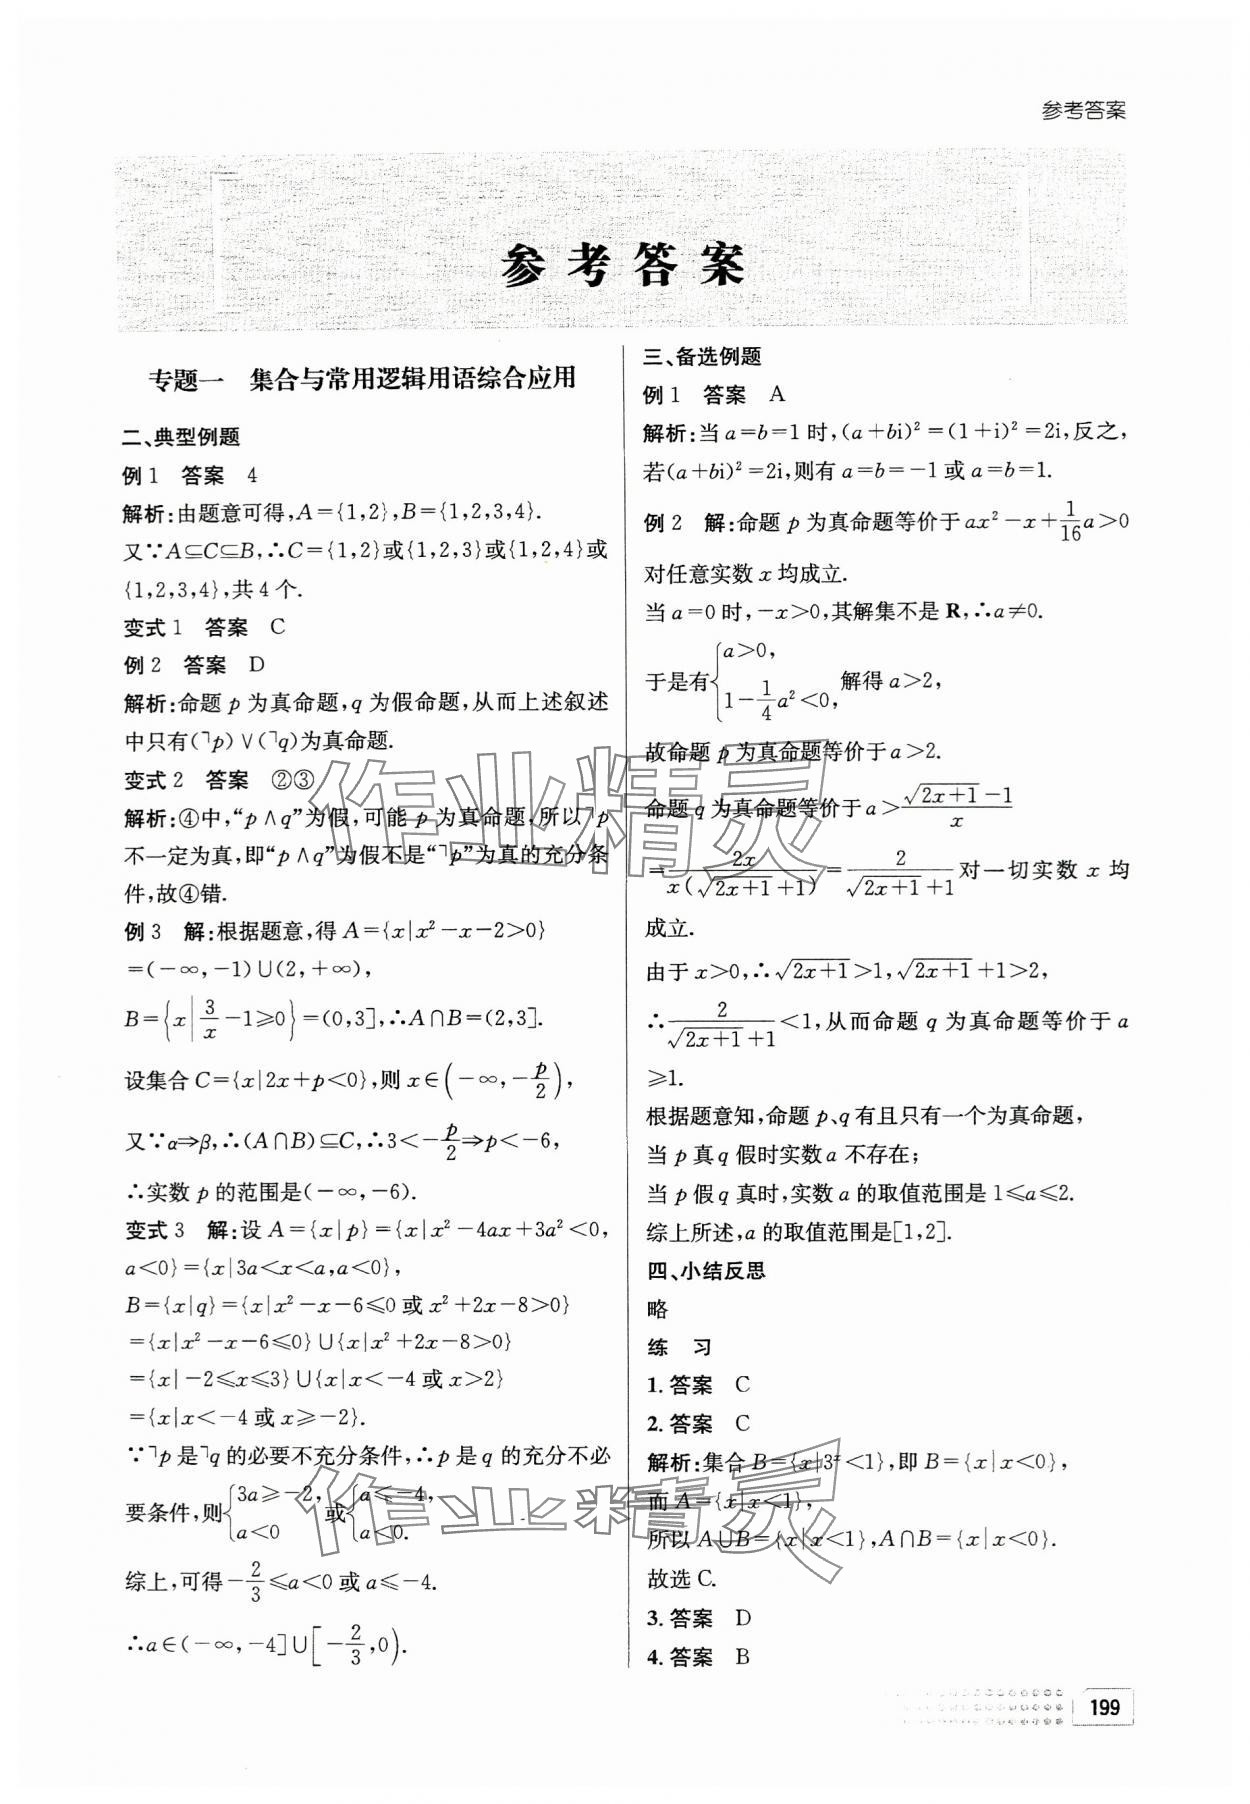 参考答案
参考答案
专题一 集合与常用逻辑用语综合应用
二、典型例题
例1 答案 4
解析:由题意可得,A={1,2},B={1,2,3,4}.
又∵A⊆C⊆B,∴C={1,2}或{1,2,3}或{1,2,4}或
{1,2,3,4},共4个.
变式1 答案 C
例2 答案 D
解析:命题 p 为真命题,q 为假命题,从而上述叙述
中只有(⌝p)∨(⌝q)为真命题.
变式2 答案 ②③
解析:④中,“p∧q”为假,可能 p 为真命题,所以⌝p
不一定为真,即“p∧q”为假不是“⌝p”为真的充分条
件,故④错.
例3 解:根据题意,得 A={x|x²-x-2>0}
=(-∞,-1)∪(2,+∞),
B={x|3/x-1≥0}=(0,3],∴A∩B=(2,3].
设集合 C={x|2x+p<0},则 x∈(-∞,-p/2),
又∵α⇒β,∴(A∩B)⊆C,∴3<-p/2⇒p<-6,
∴实数 p 的范围是(-∞,-6).
变式3 解:设 A={x|p}={x|x²-4ax+3a²<0,
a<0}={x|3a<x<a,a<0},
B={x|q}={x|x²-x-6≤0或x²+2x-8>0}
={x|x²-x-6≤0}∪{x|x²+2x-8>0}
={x|-2≤x≤3}∪{x|x<-4或x>2}
={x|x<-4或x≥-2}.
∵⌝p是⌝q的必要不充分条件,∴p是q的充分不必
要条件,则{3a≥-2, a<0 或{a≤-4, a<0.
综上,可得-2/3≤a<0或a≤-4.
∴a∈(-∞,-4]∪[-2/3,0).
三、备选例题
例1 答案 A
解析:当 a=b=1 时,(a+bi)²=(1+i)²=2i,反之,
若(a+bi)²=2i,则有 a=b=-1 或 a=b=1.
例2 解:命题 p 为真命题等价于 ax²-x+1/16a>0
对任意实数 x 均成立.
当 a=0 时,-x>0,其解集不是 R,∴a≠0.
于是有{a>0, 1-1/4a²<0, 解得 a>2,
故命题 p 为真命题等价于 a>2.
命题 q 为真命题等价于 a>(√(2x+1)-1)/x
=2x/(x(√(2x+1)+1))=2/(√(2x+1)+1)对一切实数 x 均
成立.
由于 x>0,∴√(2x+1)>1,√(2x+1)+1>2,
∴2/(√(2x+1)+1)<1,从而命题 q 为真命题等价于 a
≥1.
根据题意知,命题 p、q 有且只有一个为真命题,
当 p 真 q 假时实数 a 不存在;
当 p 假 q 真时,实数 a 的取值范围是 1≤a≤2.
综上所述,a 的取值范围是[1,2].
四、小结反思
略
练 习
1. 答案 C
2. 答案 C
解析:集合 B={x|3ˣ<1},即 B={x|x<0},
而 A={x|x<1},
所以 A∪B={x|x<1},A∩B={x|x<0}.
故选 C.
3. 答案 D
4. 答案 B
199
作业精灵
作业精灵